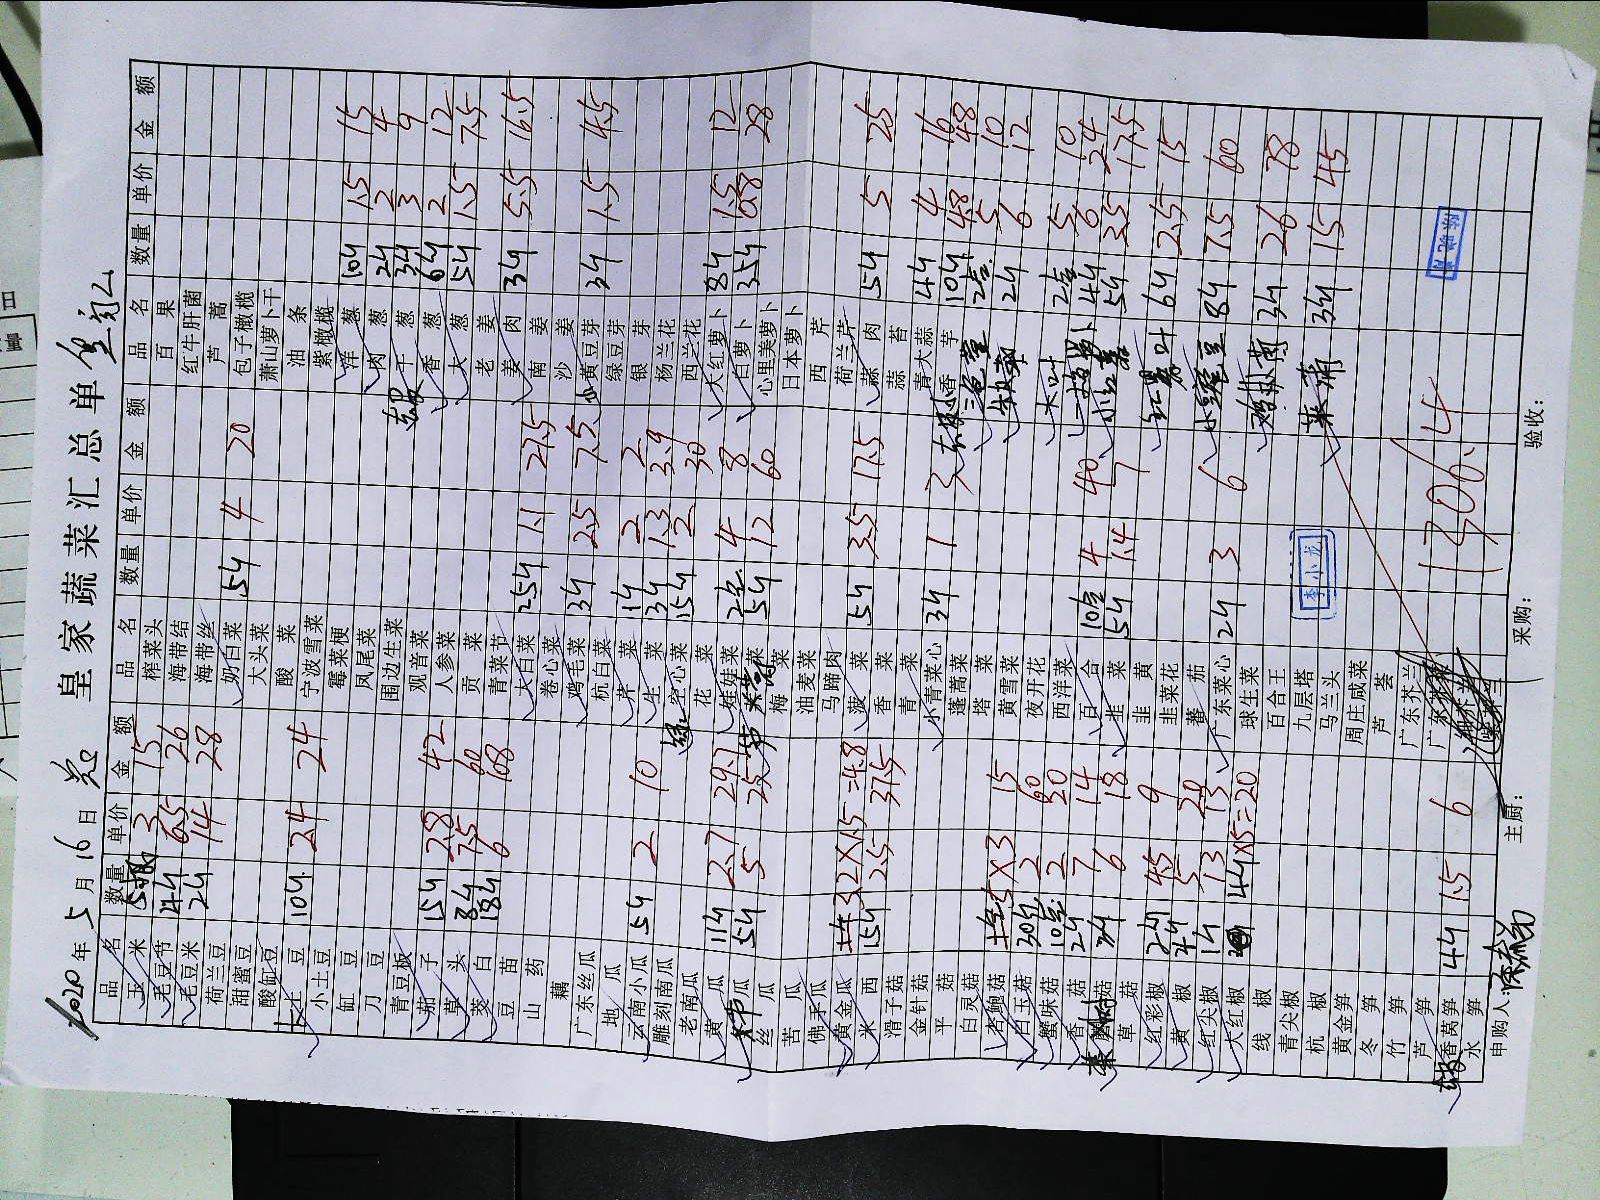 皇家蔬菜汇总单
2020年5月16日
品名 数量 单价 金额 品名 数量 单价 金额 品名 数量 单价 金额
玉米 3 15 榨菜头 百果
老豆节 4斤 6.5 26 海带结 红牛肝菌
老豆米 2斤 14 28 海带丝 芦蒿
荷兰豆 奶白菜 5斤 4 20 包子橄榄
甜蜜豆 大头菜 萧山萝卜干
酸缸豆 酸菜 油条
土豆 10斤 2.4 24 宁波雪菜 紫橄榄
小土豆 霉菜梗 洋葱 10斤 1.5 15
缸豆 凤尾菜 肉葱 2斤 2 4
刀豆 围边生菜 干葱 3斤 3 9
青豆板 观音菜 香葱 6斤 2 12
茄子 15斤 2.8 42 人参菜 大葱 5斤 1.5 7.5
草头 8斤 7.5 60 贡菜 老姜
茭白 18斤 6 108 青菜节 姜肉 3斤 5.5 16.5
豆苗 大白菜 25斤 1.1 27.5 南姜
山药 卷心菜 沙姜
藕 鸡毛菜 3斤 2.5 7.5 黄豆芽 3斤 1.5 4.5
广东丝瓜 杭白菜 绿豆芽
地瓜 芹菜 1斤 2 2 银芽
云南小瓜 5斤 2 10 生菜 3斤 1.3 3.9 杨兰花
雕刻南瓜 空心菜 15斤 2 30 西兰花
老南瓜 花菜 大红萝卜 8斤 1.5 12
黄瓜 11斤 2.7 29.7 娃娃菜 2包 4 8 白萝卜 35斤 0.8 28
丝瓜 5斤 5 25 5斤 12 60 心里美萝卜
苦瓜 梅菜 日本萝卜
佛手瓜 油麦菜 西芹
黄金瓜 3.2×1.5=4.8 马蹄肉 荷兰芹
米西 15斤 2.5 37.5 菠菜 5斤 3.5 17.5 蒜肉 5斤 5 25
滑子菇 香菜 蒜苔
金针菇 青菜 青大蒜 4斤 4 16
平菇 小青菜心 3斤 1 3 小香芋 10斤 4.8 48
白灵菇 蓬蒿菜 5 10
杏鲍菇 5×3 15 塔菜 2斤 6 12
白玉菇 30包 2 60 黄雪菜
蟹味菇 10包 2 20 夜开花 大叶 5 10
香菇 2斤 7 14 西洋菜 4斤 6 24
菇 3斤 6 18 百合 10包 4 40 5斤 3.5 17.5
草菇 韭菜 5斤 1.4 7
红彩椒 2斤 4.5 9 韭黄 6斤 2.5 15
黄椒 4斤 5 20 韭菜花
红尖椒 1斤 13 13 蕃茄 8斤 7.5 60
大红椒 4斤×5=20 广东菜心 2斤 3 6
线椒 球生菜 3斤 26 78
青尖椒 百合王
杭椒 九层塔 3斤 15 45
黄金笋 马兰头
冬笋 周庄咸菜
竹笋 芦荟
芦笋 广东芥兰
香莴笋 4斤 1.5 6
水笋
1306.4
李小龙
申购人: 主厨: 采购: 验收: